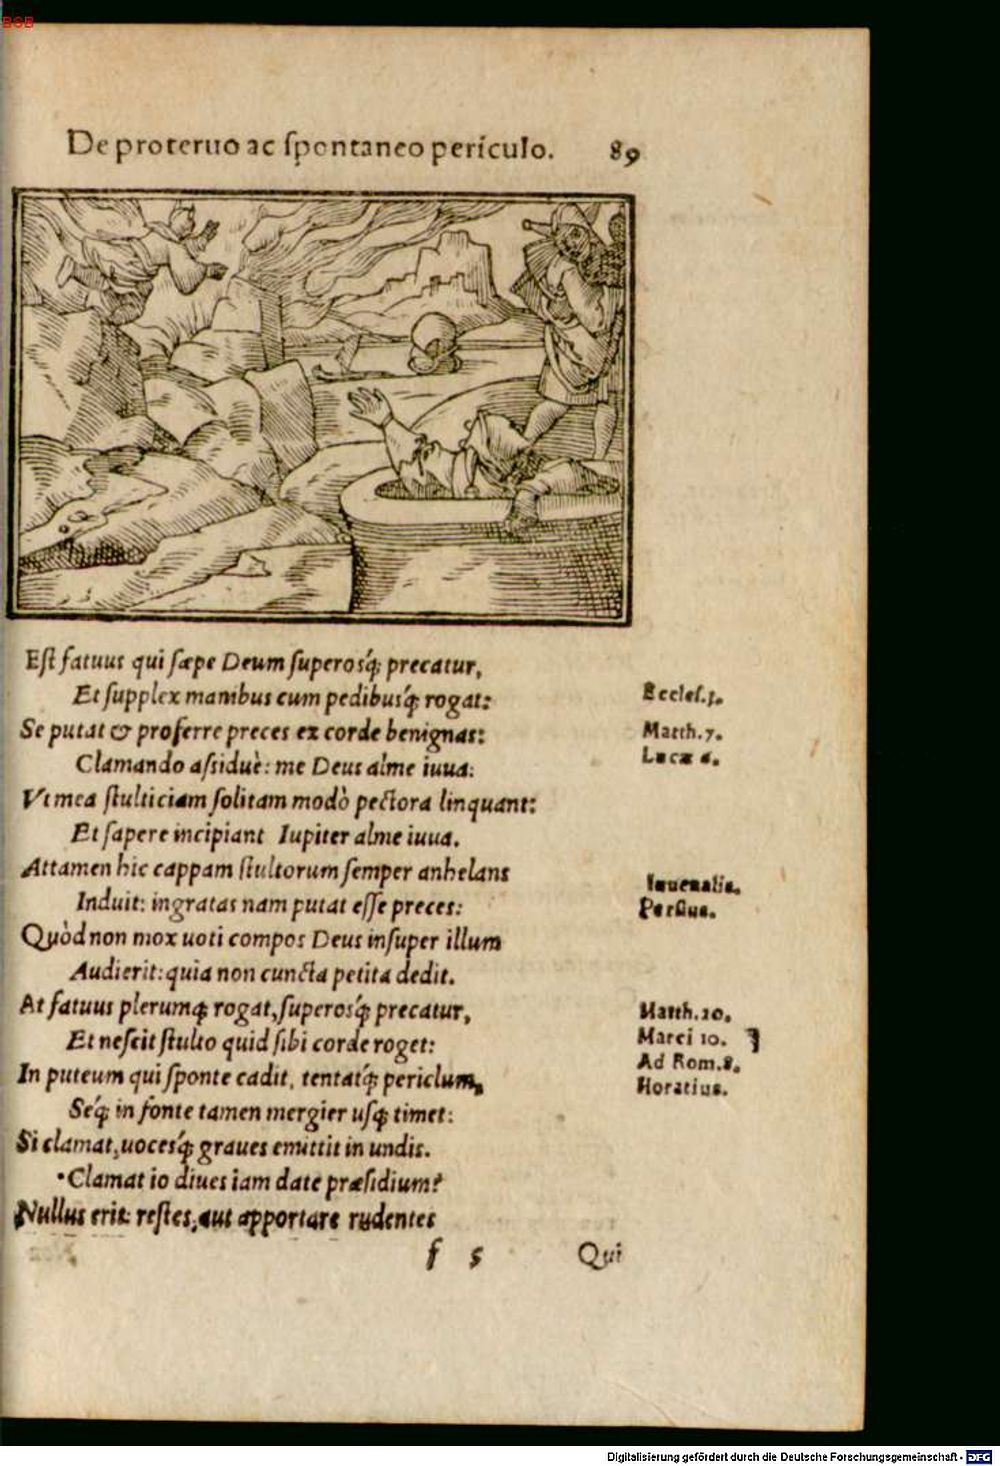 BSB
De proteruo ac ſpontaneo perículo. 89
Eſt fatuus qui ſæpe Deum ſuperosq́; precatur,
Et ſupplex manibus cum pedibusq́; rogat:
Eccleſ.5.
Se putat & proferre preces ex corde benignas:
Matth.7.
Clamando aſsiduè: me Deus alme iuua:
Lucæ 6.
Vt mea ſtulticiam ſolitam modò pectora linquant:
Et ſapere incipiant Iupiter alme iuua.
Attamen hic cappam ſtultorum ſemper anhelans
Iuuenalis.
Induit: ingratas nam putat eſſe preces:
Perſius.
Quòd non mox uoti compos Deus inſuper illum
Audierit: quia non cuncta petita dedit.
At fatuus plerumq; rogat, ſuperosq́; precatur,
Matth.20.
Et neſcit ſtulto quid ſibi corde roget:
Marci 10.
Ad Rom.8.
In puteum qui ſponte cadit, tentatq́; periclum,
Horatius.
Seq́; in fonte tamen mergier uſq; timet:
Si clamat, uocesq́; graues emittit in undis.
Clamat io diues iam date præſidium?
Nullus erit: reſtes, aut apportare rudentes
f 5 Qui
Digitalisierung gefördert durch die Deutsche Forschungsgemeinschaft - DFG